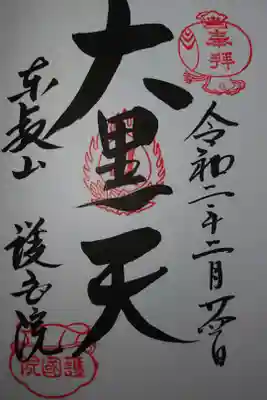 奉拝
令和二年二月日
大黒天
東叡山 護国院
護國院